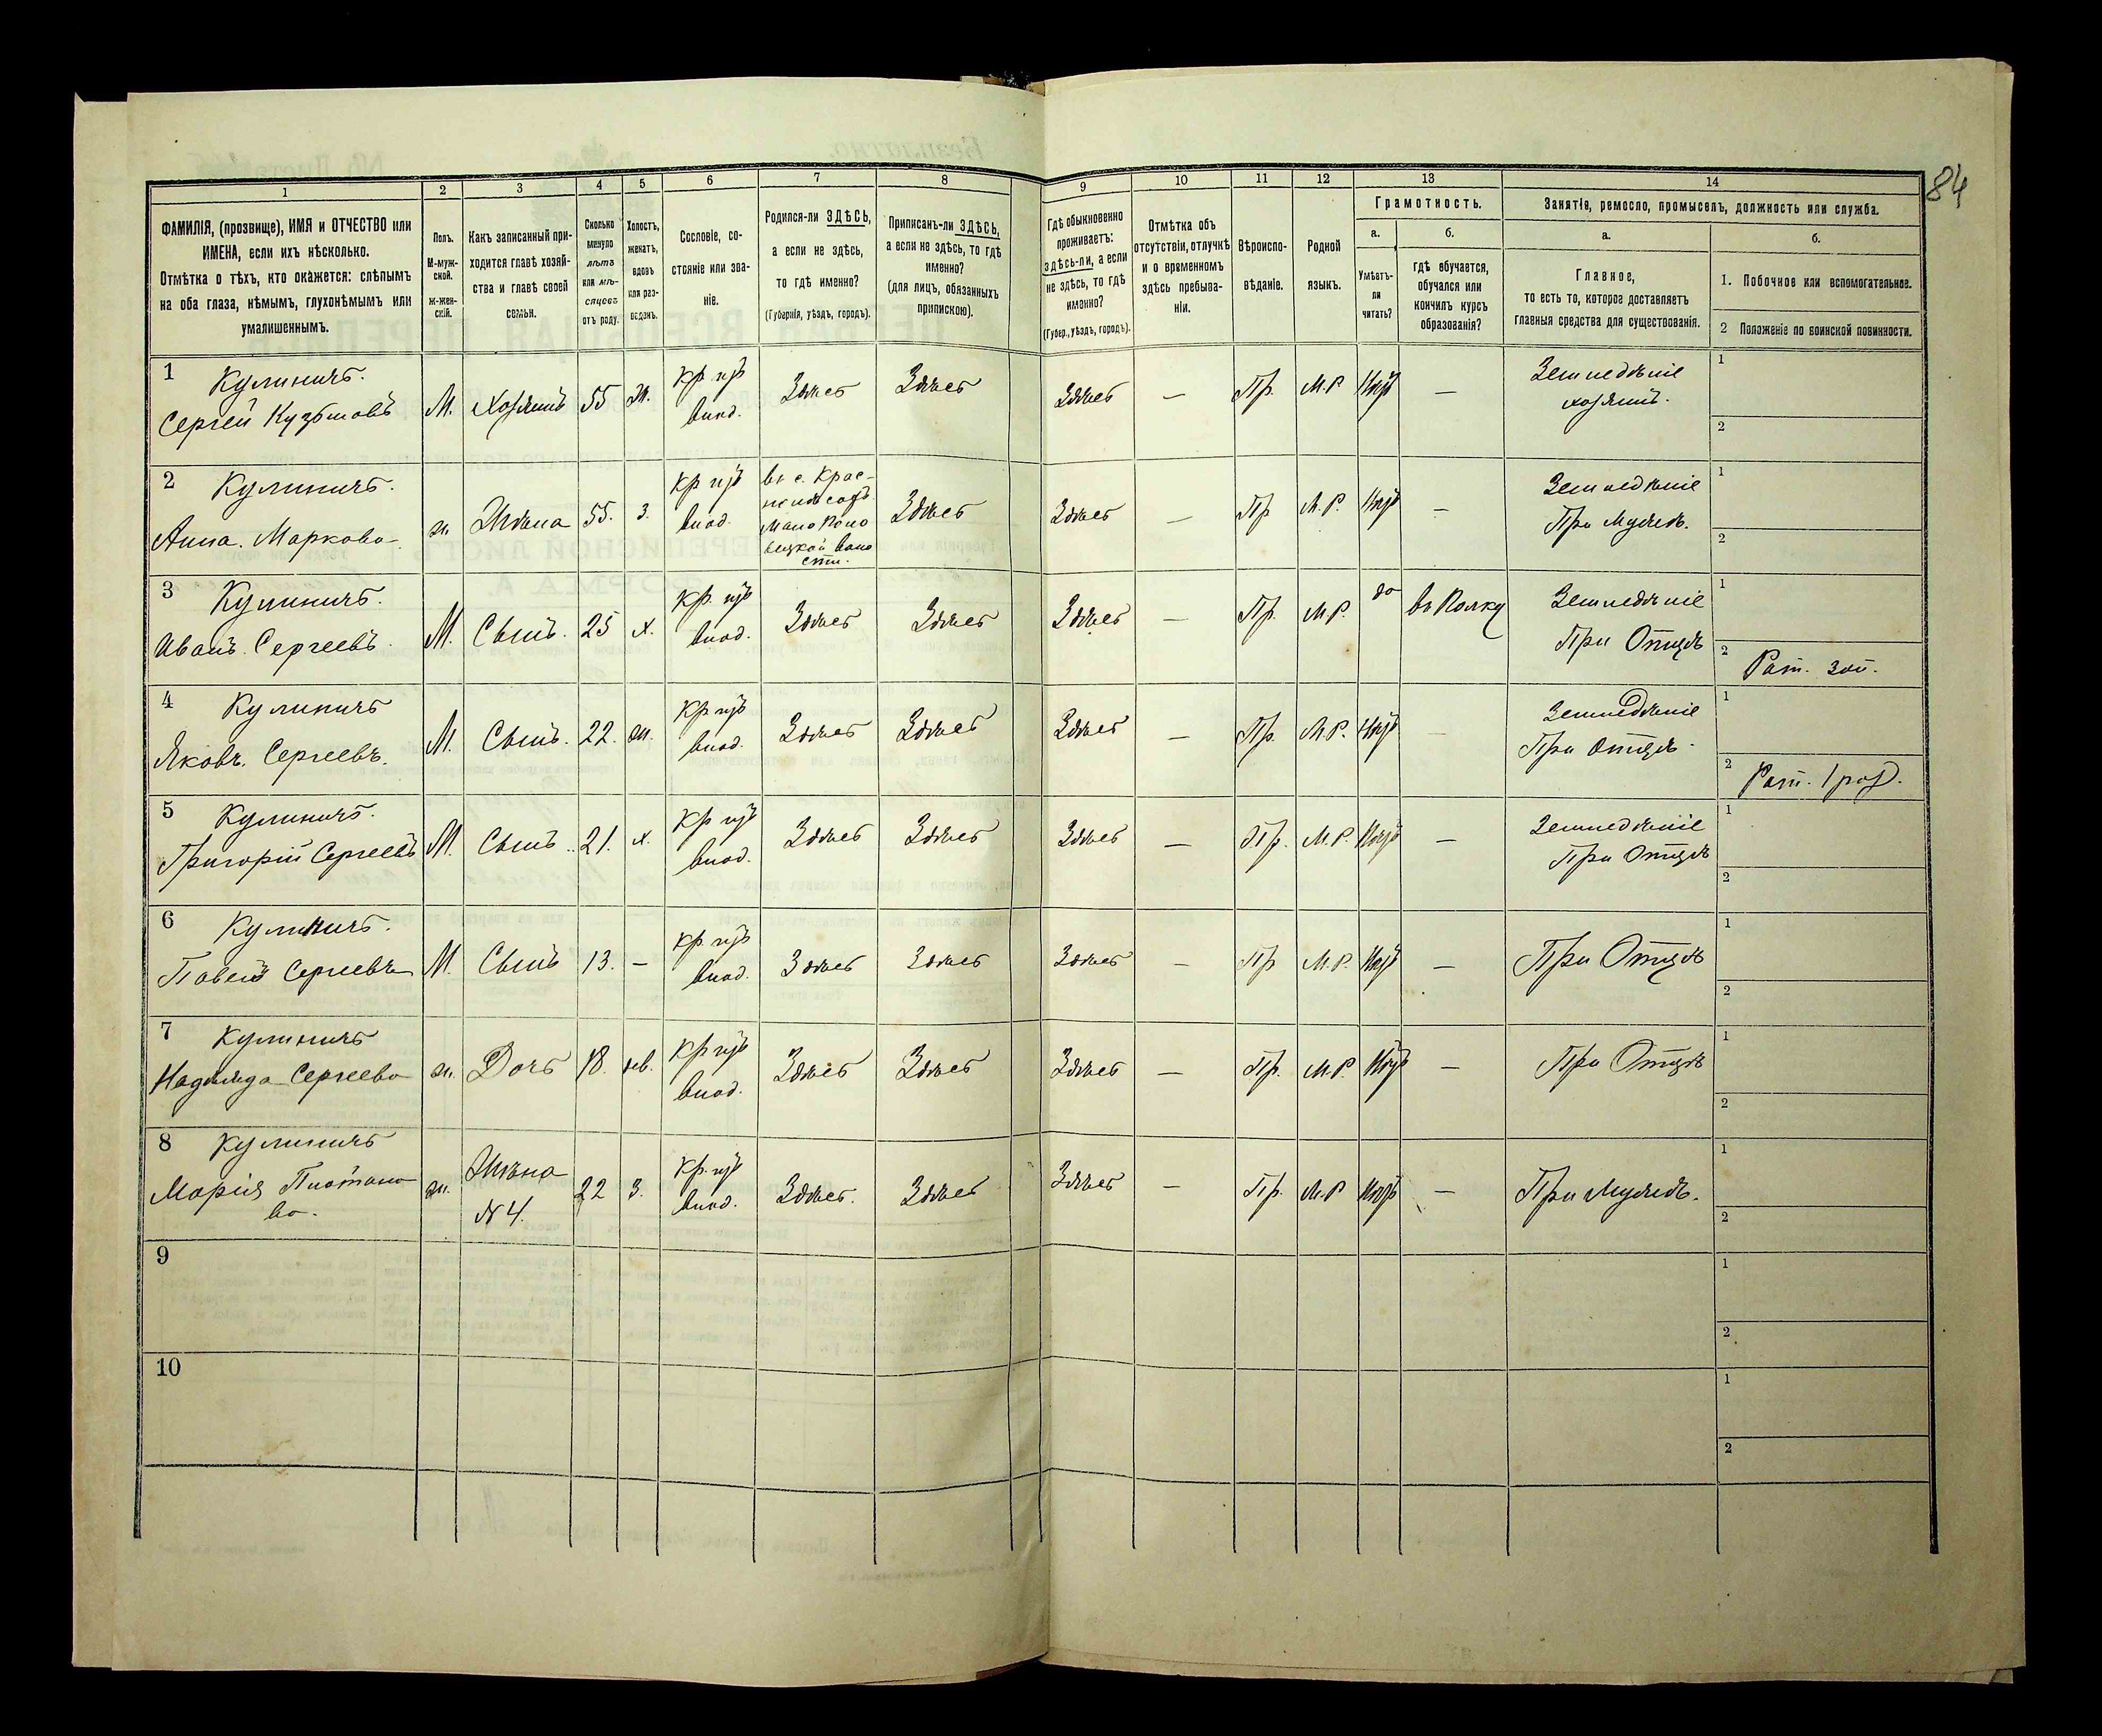 84
1 2 3 4 5 6 7 8 9 10 11 12 13 14
ФАМИЛІЯ, (прозвище), ИМЯ и ОТЧЕСТВО или
ИМЕНА, если ихъ нѣсколько.
Отмѣтка о тѣхъ, кто окажется: слѣпымъ
на оба глаза, нѣмымъ, глухонѣмымъ или
умалишеннымъ.
Полъ.
М-муж-
ской.
ж-жен-
скій.
Какъ записанный при-
ходится главѣ хозяй-
ства и главѣ своей
семьи.
Сколько
минуло
лѣтъ
или мѣ-
сяцевъ
отъ роду.
Холостъ,
женатъ,
вдовъ
или раз-
веденъ.
Сословіе, со-
стояніе или зва-
ніе.
Родился-ли ЗДѢСЬ,
а если не здѣсь,
то гдѣ именно?
(Губернія, уѣздъ, городъ).
Приписанъ-ли ЗДѢСЬ,
а если не здѣсь, то гдѣ
именно?
(для лицъ, обязанныхъ
припискою).
Гдѣ обыкновенно
проживаетъ:
здѣсь-ли, а если
не здѣсь, то гдѣ
именно?
(Губер., уѣздъ, городъ).
Отмѣтка объ
отсутствіи, отлучкѣ
и о временномъ
здѣсь пребыва-
ніи.
Вѣроиспо-
вѣданіе.
Родной
языкъ.
Грамотность.
а.
Умѣетъ-
ли
читать?
б.
гдѣ обучается,
обучался или
кончилъ курсъ
образованія?
Занятіе, ремесло, промыселъ, должность или служба.
а.
Главное,
то есть то, которое доставляетъ
главныя средства для существованія.
б.
1. Побочное или вспомогательное.
2 Положеніе по воинской повинности.
1 Кулиничъ.
Сергей Кузьмовъ М. Хозяинъ 55 ж. кр изъ влад. Здѣсь Здѣсь Здѣсь — Пр. М.Р. Нѣтъ — Земледѣліе хозяинъ. 1
2
2 Кулиничъ.
Анна. Маркова ж. Жѣна 55. З. кр изъ влад. Здѣсь Здѣсь — Пр М.Р. Нѣтъ — Земледѣліе При Мужѣ. 1
2
3 Кулиничъ.
Иванъ Сергеевъ М. Сынъ. 25 х. кр. изъ влад. Здѣсь Здѣсь Здѣсь — Пр. М.Р. да въ Полку Земледѣліе При Отцѣ 1
2 Рат. зап.
4 Кулиничъ
Яковъ. Сергеевъ. М. Сынъ. 22. ж. кр изъ влад. Здѣсь Здѣсь Здѣсь — Пр. М.Р. Нѣтъ Земледѣліе При отцѣ 1
2 Рат. 1 раз.
5 Кулиничъ.
Григорій Сергеевъ М. Сынъ. 21. х. кр изъ влад. Здѣсь Здѣсь Здѣсь — Пр. М.Р. Нѣтъ — Земледѣліе При Отцѣ 1
2
6 Кулиничъ.
Павелъ Сергеевъ М. Сынъ 13. — кр изъ влад. Здѣсь Здѣсь Здѣсь — Пр М.Р. Нѣтъ — При Отцѣ 1
2
7 Кулиничъ
Надежда Сергеева ж. Дочь 18. дѣв. кр изъ влад. Здѣсь Здѣсь Здѣсь — Пр. М.Р. Нѣтъ — При Отцѣ 1
2
8 Кулиничъ
Марія Платоно
ва. ж. Жѣна №4. 22 З. кр. изъ влад. Здѣсь. Здѣсь Здѣсь — Пр. М.Р Нѣтъ — При Мужѣ. 1
2
9 1
2
10 1
2